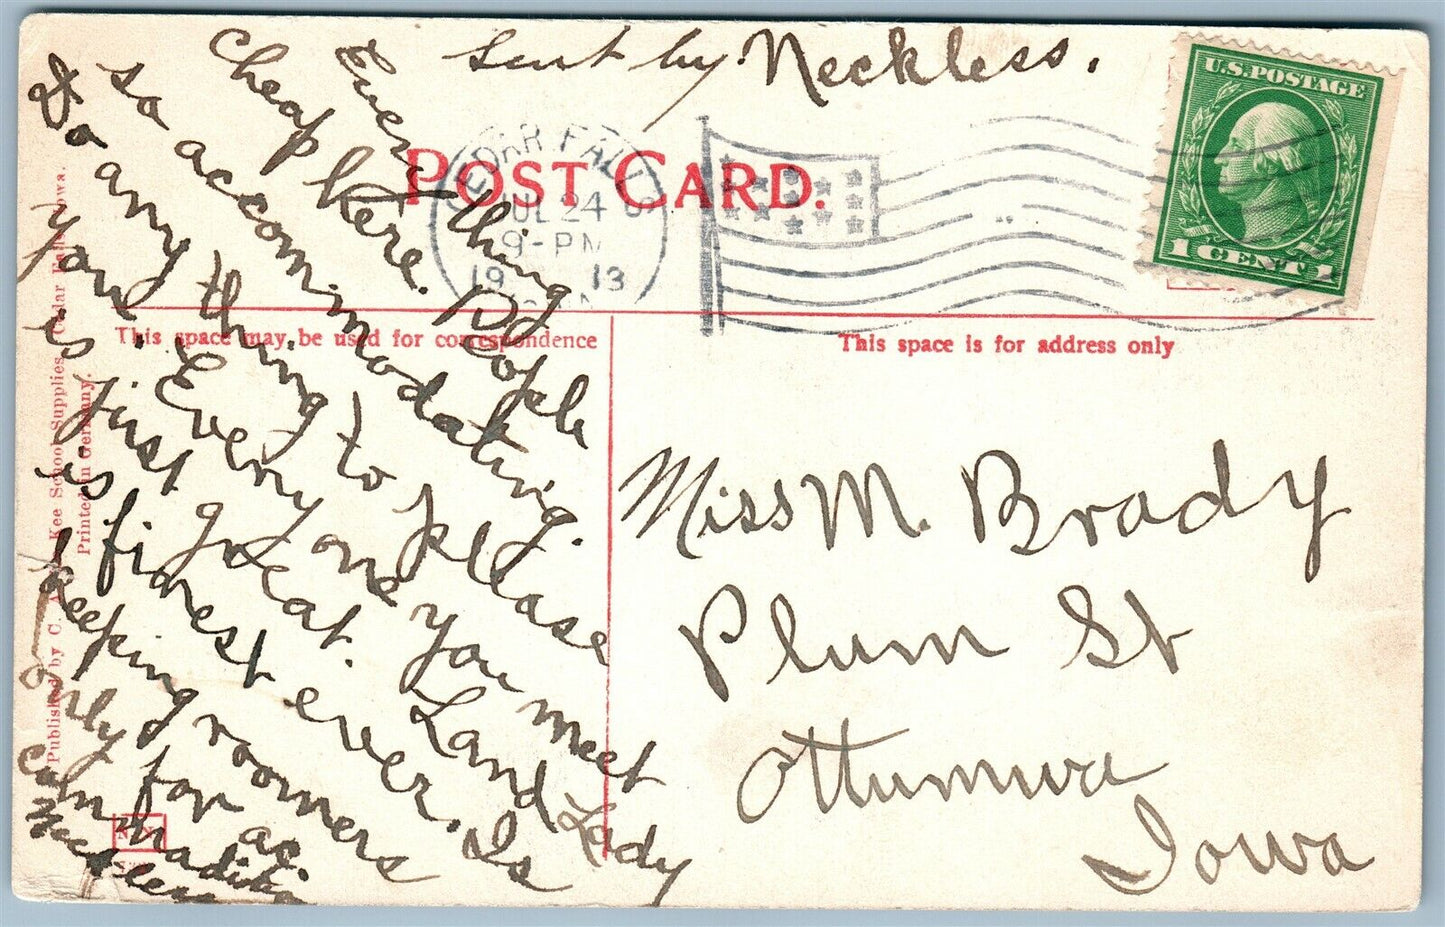 Sent by Neckless.
U.S. POSTAGE
1 CENT 1
POST CARD.
CEDAR FALLS
JUL 24
9-PM
19 13
This space may be used for correspondence
This space is for address only
Every thing
cheap here. People
so accommodating.
Do any thing to please
you. Every one you meet
is just great. Land Lady
is finest ever. Is
keeping roomers
only for ac.
commadition
Neckless
Miss M. Brady
Plum St
Ottumwa
Iowa
Published by C. A. Kee School Supplies, Cedar Falls, Iowa.
Printed in Germany.